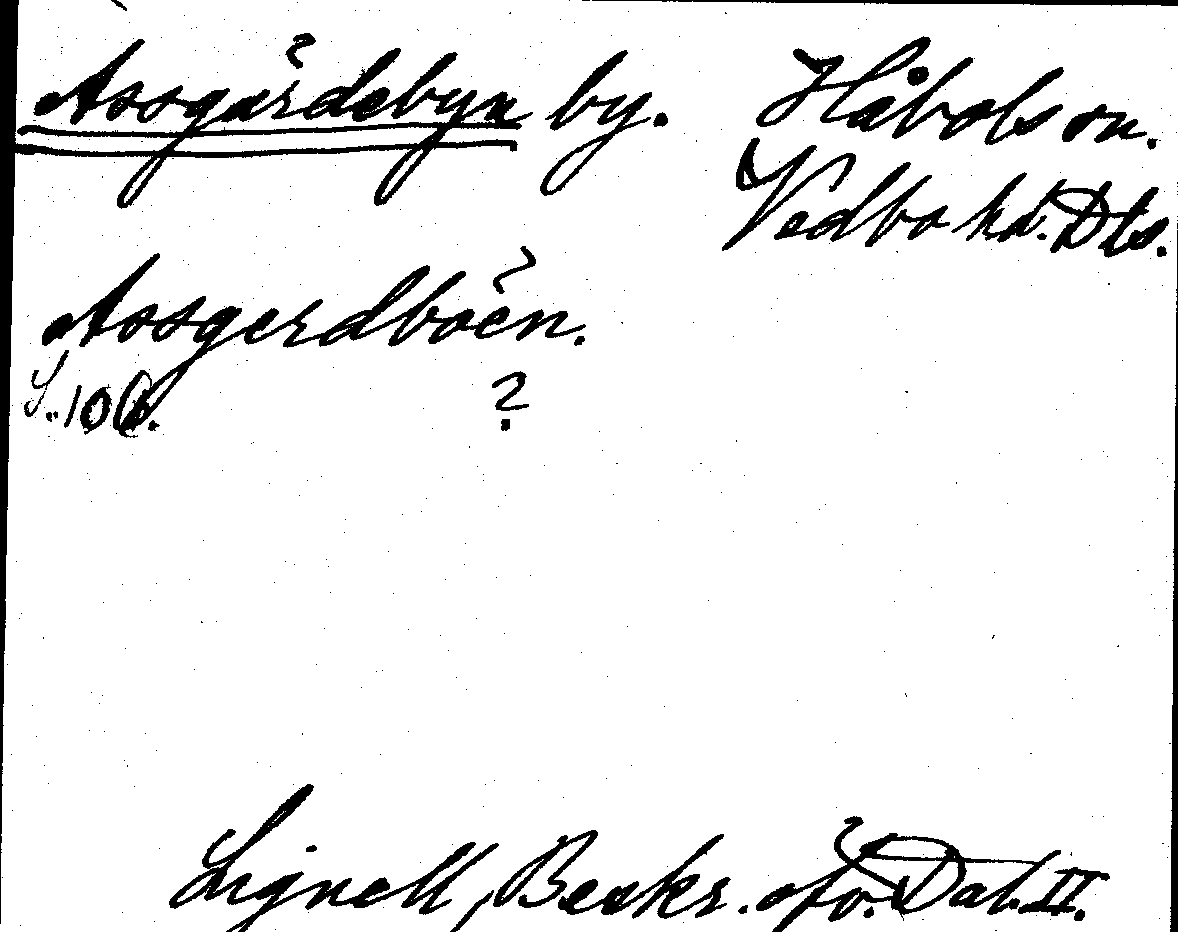 Assgärdebyn by. Håbols sn.
Vedbo hd. Dls.
Assgerdböen.
S. 106. ?
Lignell, Beskr. öfv. Dal. II.